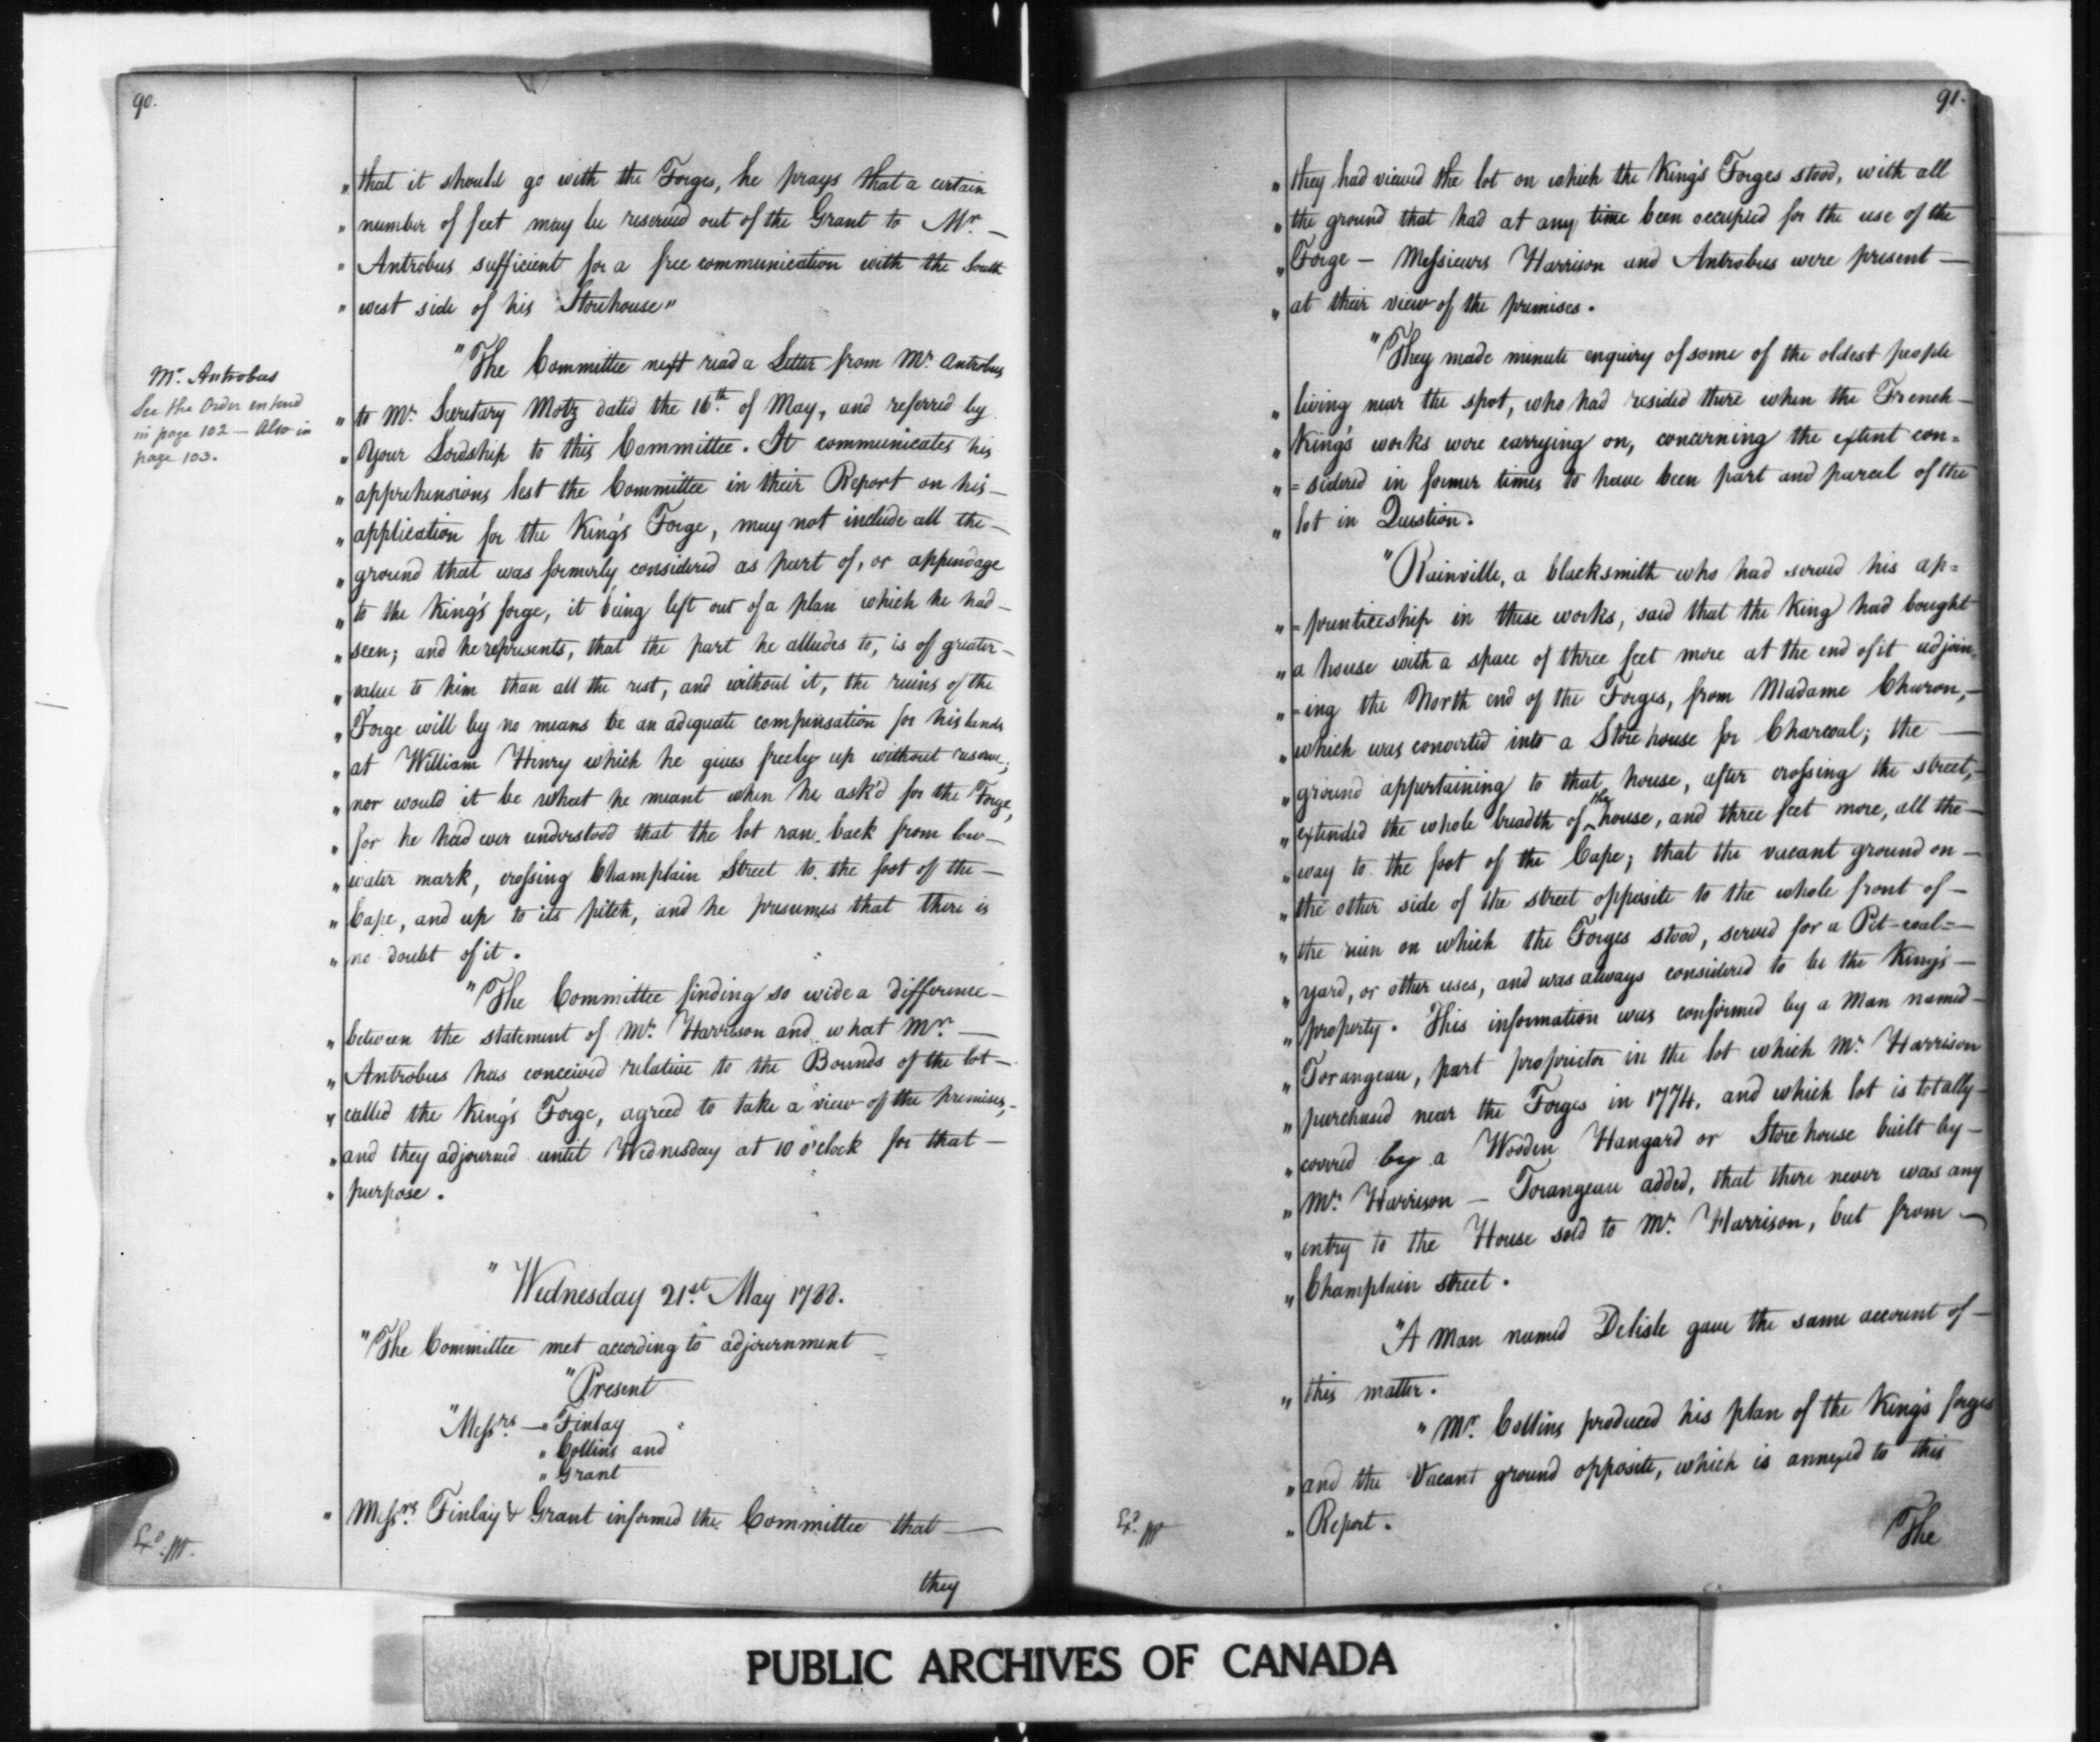 90.
" that it should go with the Forges, he prays that a certain
" number of feet may be reserved out of the Grant to Mr. —
" Antrobus sufficient for a free communication with the South
" west side of his Storehouse"
"The Committee next read a Letter from Mr. Antrobus
Mr. Antrobus
See the Order entered
in page 102 — Also in
page 103.
" to Mr. Secretary Motz dated the 16th. of May, and referred by
" Your Lordship to this Committee. It communicates his
" apprehensions lest the Committee in their Report on his —
" application for the King's Forge, may not include all the —
" ground that was formerly considered as part of, or appendage
" to the King's forge, it being left out of a plan which he had —
" seen; and he represents, that the part he alludes to, is of greater —
" value to him than all the rest, and without it, the ruins of the
" Forge will by no means be an adequate compensation for his lands
" at William Henry which he gives freely up without reserve;
" nor would it be what he meant when he ask'd for the Forge,
" for he had ever understood that the lot ran back from low —
" water mark, crossing Champlain Street to the foot of the —
" Cape, and up to its pitch, and he presumes that there is
" no doubt of it.
"The Committee finding so wide a difference —
" between the statement of Mr. Harrison and what Mr. —
" Antrobus has conceived relative to the Bounds of the lot —
" called the King's Forge, agreed to take a view of the premises, —
" and they adjourned until Wednesday at 10 o'clock for that —
" purpose.
" Wednesday 21st. May 1788.
"The Committee met according to adjournment —
"Present
"Messrs. — " Finlay
" Collins and
" Grant
" Messrs. Finlay & Grant informed the Committee that —
they
91.
" they had viewed the lot on which the King's Forges stood, with all
" the ground that had at any time been occupied for the use of the
" Forge — Messieurs Harrison and Antrobus were present —
" at their view of the premises.
"They made minute enquiry of some of the oldest people
" living near the spot, who had resided there when the French —
" King's works were carrying on, concerning the extent con=
" =sidered in former times to have been part and parcel of the
" lot in Question.
"Rainville, a blacksmith who had served his ap=
" =prenticeship in these works, said that the King had bought
" a house with a space of three feet more at the end of it adjoin=
" =ing the North end of the Forges, from Madame Charon, —
" which was converted into a Store house for Charcoal; the —
" ground appertaining to that house, after crossing the street, —
" extended the whole breadth of the house, and three feet more, all the —
" way to the foot of the Cape; that the vacant ground on —
" the other side of the street opposite to the whole front of —
" the ruin on which the Forges stood, served for a Pit-coal= —
" yard, or other uses, and was always considered to be the King's —
" property. This information was confirmed by a Man named —
" Torangeau, part proprietor in the lot which Mr. Harrison
" purchased near the Forges in 1774. and which lot is totally —
" covered by a Wooden Hangard or Storehouse built by —
" Mr. Harrison — Torangeau added, that there never was any
" entry to the House sold to Mr. Harrison, but from —
" Champlain street.
"A Man named Delisle gave the same account of —
" this matter.
" Mr. Collins produced his plan of the King's forges
" and the Vacant ground opposite, which is annexed to this
" Report.
The
PUBLIC ARCHIVES OF CANADA